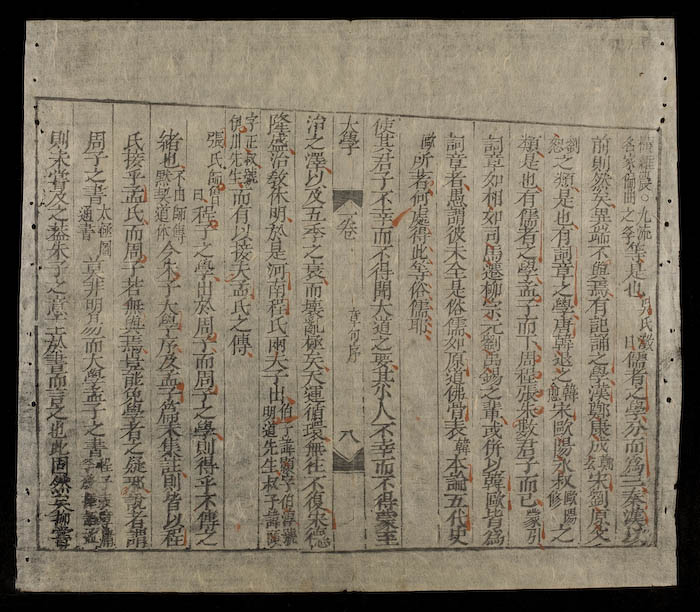 九流
等是也 吳氏
曰儒者之學分而爲三秦漢以
前則然矣異端不與焉有記誦之學漢鄭康成 宋劉原父
劉之類是也有詞章之學唐韓退之韓愈宋歐陽永叔歐陽修之
類是也有儒者之學孟子而下周程張朱數君子而已蒙引
詞章如相如司馬遷柳宗元劉禹錫之輩或併以韓歐皆爲
詞章者愚謂彼未全是俗儒如原道佛骨表韓本論五代史
歐所著何處得此等俗儒耶
使其君子不幸而不得聞大道之要其小人不幸而不得蒙至
大學 一卷 章句序 八
治之澤以及五季之衰而壞亂極矣天運循環無往不復宋德
隆盛治教休明於是河南程氏兩夫子出伯子諱顥字伯淳號明道先生叔子諱頤
字正叔號伊川先生而有以接夫孟氏之傳
張氏師曾曰程子之學出於周子而周子之學則得乎不傳之
緒也不由師傳默契道体今朱子大學序及孟子篇末集註則皆以程
氏接乎孟氏而周子若無與焉豈能免學者之疑耶說者謂
周子之書太極圖通書莫非明易而大學孟子之書
則未嘗及之蓋朱子之意主於書而言之也此固然矣抑嘗